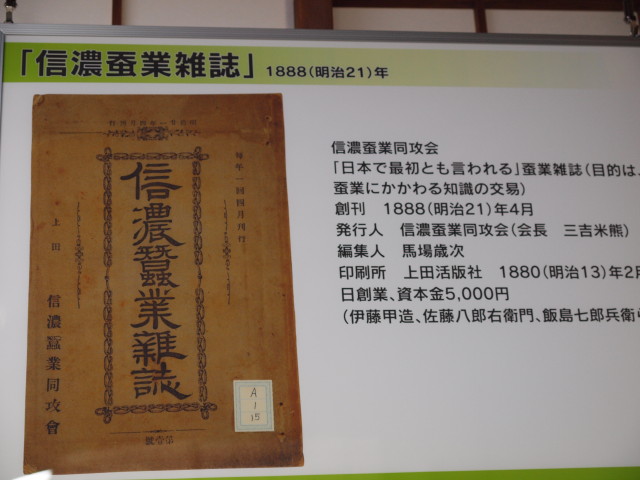 「信濃蚕業雑誌」 1888(明治21)年
信濃蚕業同攻会
「日本で最初とも言われる」蚕業雑誌(目的は、
蚕業にかかわる知識の交易)
創刊 1888(明治21)年4月
発行人 信濃蚕業同攻会(会長 三吉米熊)
編集人 馬場歳次
印刷所 上田活版社 1880(明治13)年2月
日創業、資本金5,000円
(伊藤甲造、佐藤八郎右衛門、飯島七郎兵衛ら
毎年一回四月刊行
信濃蠶業雜誌
上田 信濃蠶業同攻會
A
1
15